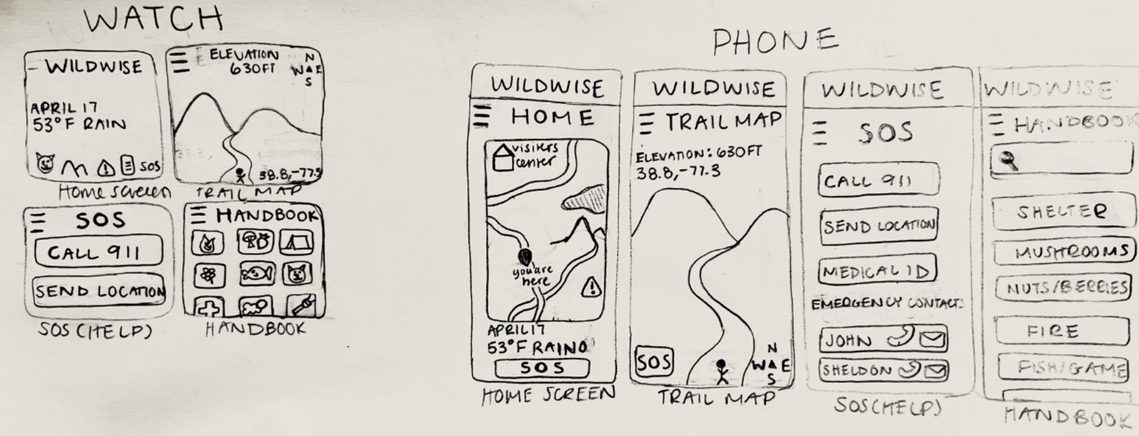 WATCH
WILDWISE
APRIL 17
53°F RAIN
SOS
Home Screen
ELEVATION
630FT
N
W E
S
38.8,-77.3
TRAIL MAP
SOS
CALL 911
SEND LOCATION
SOS (HELP)
HANDBOOK
HANDBOOK
PHONE
WILDWISE
HOME
visiters
center
you are
here
APRIL 17
53°F RAINO
SOS
HOME SCREEN
WILDWISE
TRAIL MAP
ELEVATION: 630FT
38.8,-77.3
SOS
N
W E
S
TRAIL MAP
WILDWISE
SOS
CALL 911
SEND LOCATION
MEDICAL ID
EMERGENCY CONTACT:
JOHN
SHELDON
SOS (HELP)
WILDWISE
HANDBOOK
SHELTER
MUSHROOMS
NUTS/BERRIES
FIRE
FISH/GAME
HANDBOOK